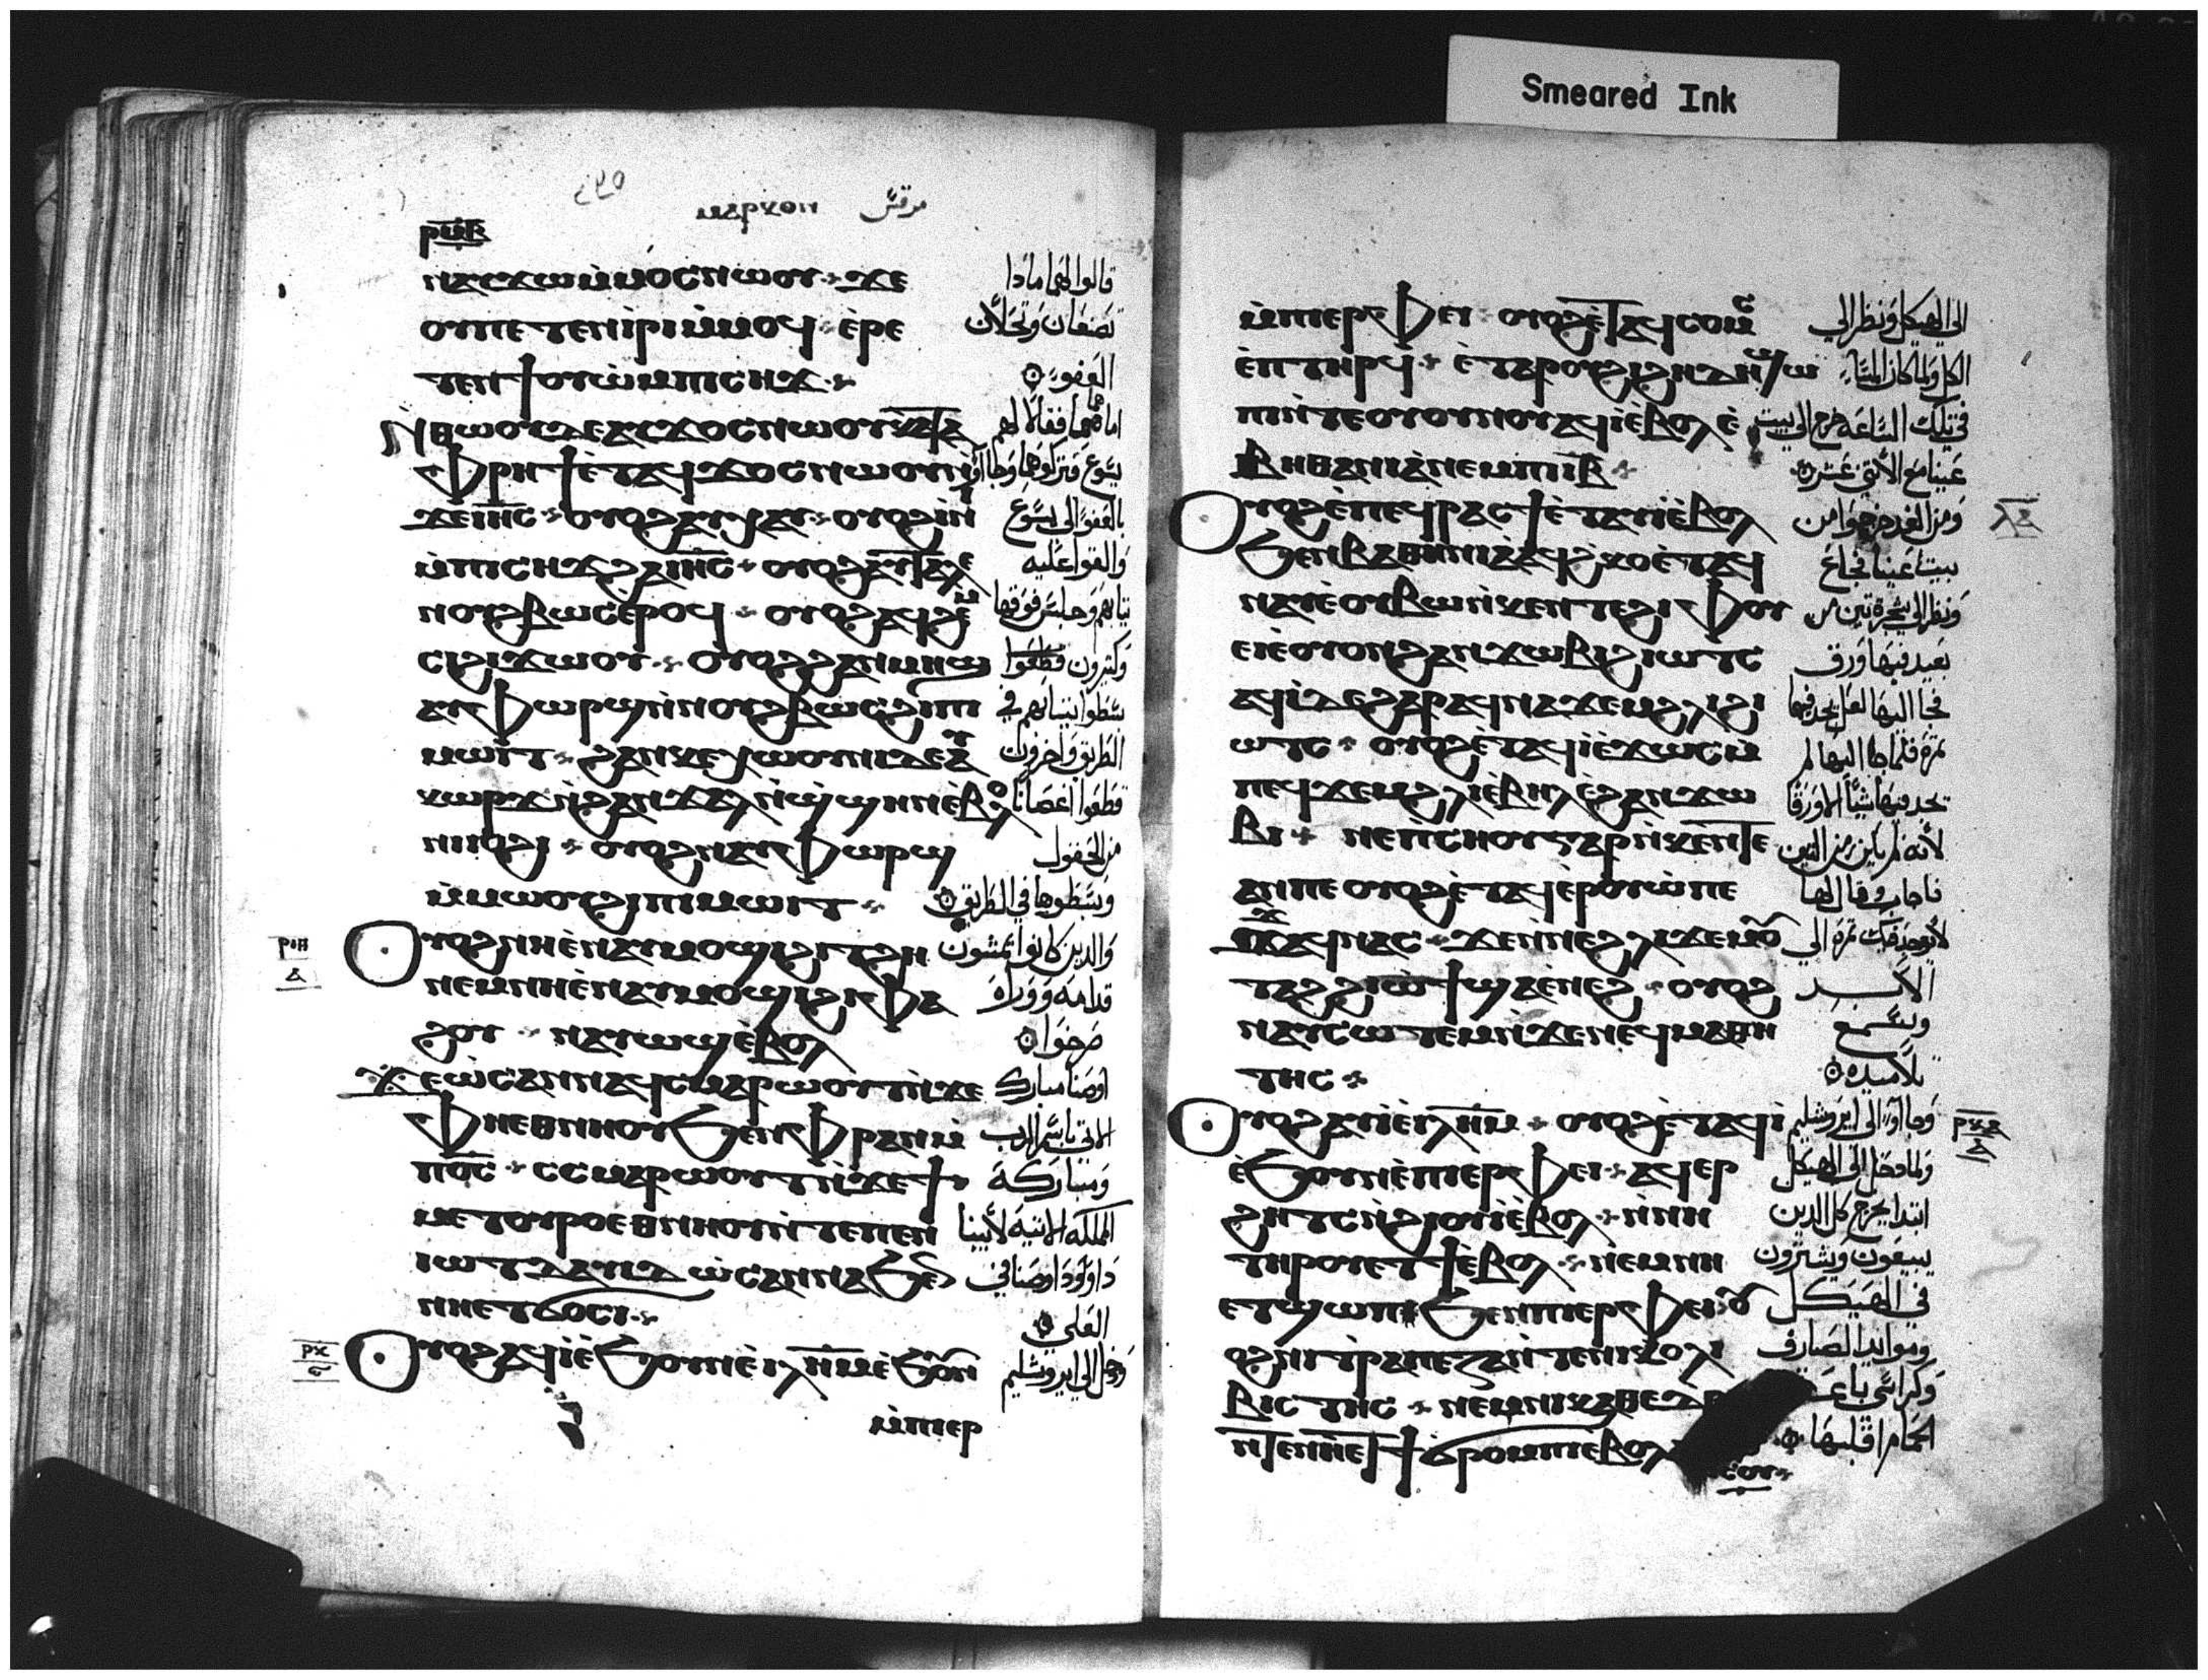 Smeared Ink
٢٢٥
ⲙⲁⲣⲕⲟⲛ مرقس
ⲣⲙⲃ
ⲛⲁⲩϫⲱⲙ̇ⲙⲟⲥⲛⲱⲟⲩ ϫⲉ
ⲟⲩⲡⲉⲧⲉⲛⲓ̇ⲣⲓⲙ̇ⲙⲟϥ ⲉ̇ⲣⲉ
ⲧⲉⲛϯⲟⲩⲱ̇ⲙⲡⲥⲏϫ
ⲛ̇ⲑⲱⲟⲩⲇⲉⲁⲩϫⲟⲥⲛⲱⲟⲩⲕⲁⲧⲁ
ⲫⲣⲏϯⲉ̇ⲧⲁϥϫⲟⲥⲛⲱⲟⲩⲛ̇
ϫⲉⲓⲏⲥ ⲟⲩⲟϩⲁⲩⲭⲁⲩ ⲟⲩⲟϩⲓⲛⲓ
ⲙ̇ⲡⲥⲏϫϩⲁⲓⲏⲥ ⲟⲩⲟϩⲁⲩⲧⲁⲗⲉ
ⲛⲟⲩϩⲃⲱⲥⲉ̇ⲣⲟϥ ⲟⲩⲟϩⲁϥϩⲉⲙ
ⲥⲓϩⲓϫⲱⲟⲩ ⲟⲩⲟϩϩⲁⲛⲙⲏϣ
ⲁⲩⲫⲱⲣϣⲛ̇ⲛⲟⲩϩⲃⲱⲥϩⲓⲡⲓ
ⲙⲱⲓⲧ ϩⲁⲛⲕⲉⲭⲱⲟⲩⲛⲓⲇⲉⲁⲩ
ⲕⲱⲣϫⲛ̇ϩⲁⲛϫⲁⲗⲛ̇ϣ̇ϣⲏⲛⲉ̇ⲃⲟⲗ
ⲛⲓⲓⲟϩⲓ ⲟⲩⲟϩⲛⲁⲩⲫⲱⲣϣ
ⲙ̇ⲙⲱⲟⲩϩⲓⲡⲓⲙⲱⲓⲧ
ⲟⲩⲟϩⲛⲏⲉ̇ⲛⲁⲩⲙⲟϣⲓϩⲓⲧϩⲏ
ⲛⲉⲙⲛⲏⲉ̇ⲛⲁⲩⲙⲟϣⲓϩⲓⲫⲁ
ϩⲟⲩ ⲛⲁⲩⲱϣⲉ̇ⲃⲟⲗ
ϫⲉⲱ̇ⲥⲁⲛⲛⲁϥⲥⲙⲁⲣⲱⲟⲩⲧⲛ̇ϫⲉ
ⲫⲏⲉⲑⲛⲏⲟⲩϧⲉⲛⲫⲣⲁⲛⲙ̇
ⲡⲟ̅ⲥ̅ ⲥⲥⲙⲁⲣⲱⲟⲩⲧⲛ̇ϫⲉϯ
ⲙⲉⲧⲟⲩⲣⲟⲉⲑⲛⲏⲟⲩⲛ̇ⲧⲉⲡⲉⲛ
ⲓⲱⲧⲇⲁⲩⲓⲇ ⲱ̇ⲥⲁⲛⲛⲁϧⲉⲛ
ⲛⲏⲉⲧϭⲟⲥⲓ
ⲟⲩⲟϩⲁϥⲓ̇ⲉ̇ϧⲟⲩⲛⲉ̇ⲓⲗⲏⲙⲉ̇ϧⲟⲩⲛ
ⲙ̇ⲡⲓⲉⲣ
قالوا لهما مادا
تصنعان وتحلان
العفو
اما هما فقالا لهم
بالعفو الى يسوع
والقوا عليه
ثيابهم وجلس فوقها
وكثيرون
بسطوا ثيابهم في
الطريق واخرون
قطعوا اغصانا
من الحقول
وبسطوها في الطريق
والدين كانوا يمشون
قدامه ووراه
صرخوا
اوصنا مبارك
الاتي باسم الرب
ومباركة
المملكه الاتيه لابينا
داوود اوصنا في
العلي
ودخل الى ايروشليم
ⲣⲕ
ⲙ̇ⲡⲓⲉⲣⲫⲉⲓ ⲟⲩⲟϩⲉ̇ⲧⲁϥⲥⲟⲙⲥ
ⲉ̇ⲡⲧⲏⲣϥ ⲉ̇ⲧⲁⲣⲟⲩϩⲓϩⲏⲇⲏϣⲱ
ⲡⲓⲛ̇ⲧⲉⲟⲩⲟⲩⲛⲟⲩⲁϥⲓ̇ⲉ̇ⲃⲟⲗⲉ̇
ⲃⲏⲑⲁⲛⲓⲁ̇ⲛⲉⲙⲡⲓⲓ̅ⲃ̅
ⲟⲩⲟϩⲉ̇ⲡⲉϥⲣⲁⲥϯⲉ̇ⲧⲁⲩⲓ̇ⲉ̇ⲃⲟⲗ
ϧⲉⲛⲃⲏⲑⲁⲛⲓⲁ̇ⲁϥϩ̇ⲕⲟⲉ̇ⲧⲁϥ
ⲛⲁⲩⲉ̇ⲟⲩⲃⲱⲛ̇ⲕⲉⲛⲧⲉϩⲓⲫⲟⲩ
ⲉⲓⲉ̇ⲟⲩⲟⲛϩⲁⲛϫⲱⲃⲓϩⲓⲱⲧⲥ
ⲁϥⲓ̇ⲇⲉϩⲁⲣⲁϥⲛⲁϫⲉⲙϩⲗⲓϩⲓ
ⲱⲧⲥ ⲟⲩⲟϩⲉ̇ⲧⲁϥⲓ̇ⲉ̇ϫⲱⲥⲙ̇
ⲡⲉϥϫⲉⲙϩⲗⲓⲉ̇ⲃⲏⲗⲉ̇ϩⲁⲛϫⲱ
ⲃⲓ ⲛⲉⲡ̇ⲥⲏⲟⲩⲅⲁⲣⲛ̇ⲕⲉⲛⲧⲉ
ⲁⲛⲡⲉ ⲟⲩⲟϩⲉ̇ⲧⲁϥⲉ̇ⲣⲟⲩⲱ̇ⲡⲉ
ϫⲁϥⲛⲁⲥ ϫⲉⲛⲛⲉϩⲗⲓϫⲉⲙⲟⲩ
ⲧⲁϩϩⲓⲱ̇ϯϣⲁⲉ̇ⲛⲉϩ ⲟⲩⲟϩ
ⲛⲁⲩⲥⲱⲧⲉⲙⲛ̇ϫⲉⲛⲉϥⲙⲁⲑⲏ
ⲧⲏⲥ
ⲟⲩⲟϩⲁⲩⲓ̇ⲉ̇ⲓⲗⲏⲙ ⲟⲩⲟϩⲉ̇ⲧⲁϥⲓ̇
ⲉ̇ϧⲟⲩⲛⲉ̇ⲡⲓⲉⲣⲫⲉⲓ ⲁϥⲉⲣ
ϩⲏⲧⲥⲛ̇ϩⲓⲟⲩⲓ̇ⲉ̇ⲃⲟⲗ ⲛ̇ⲛⲏ
ⲧⲏⲣⲟⲩⲉⲧϯⲉ̇ⲃⲟⲗ ⲛⲉⲙⲛⲏ
ⲉⲧϣⲱⲡ ϧⲉⲛⲡⲓⲉⲣⲫⲉⲓ ⲟⲩ
ⲟϩⲛⲓⲧⲣⲁⲡⲉⲍⲁⲛ̇ⲧⲉⲛⲓⲕⲟⲗⲓ
ⲃⲓⲥⲧⲏⲥ ⲛⲉⲙⲛⲓⲕⲁⲑⲉⲇⲣ
ⲛ̇ⲧⲉⲛⲏⲉⲧϯϭⲣⲟⲙⲡⲓⲉⲃⲟⲗ
الى الهيكل ونظر الى
الكل ولما كان المساء
في تلك الساعه خرج الى بيت
عنيا مع الاثني عشر
ومن الغد خرجوا من
بيت عنيا فجاع
ونظر الى شجرة تين من
بعيد فيها ورق
فجا اليها لعل يجد فيها
تمرة فلما جا اليها لم
يجد فيها شيا الا ورقا
لانه لم يكن زمن التين
فاجاب وقال لها
الابد
وليسمع
تلاميده
وجاوا الى ايروشليم
ولما دخل الى الهيكل
ابتدا يخرج كل الدين
يبيعون ويشترون
في الهيكل
وموايد الصيارف
وكراسي
الحمام اقلبها